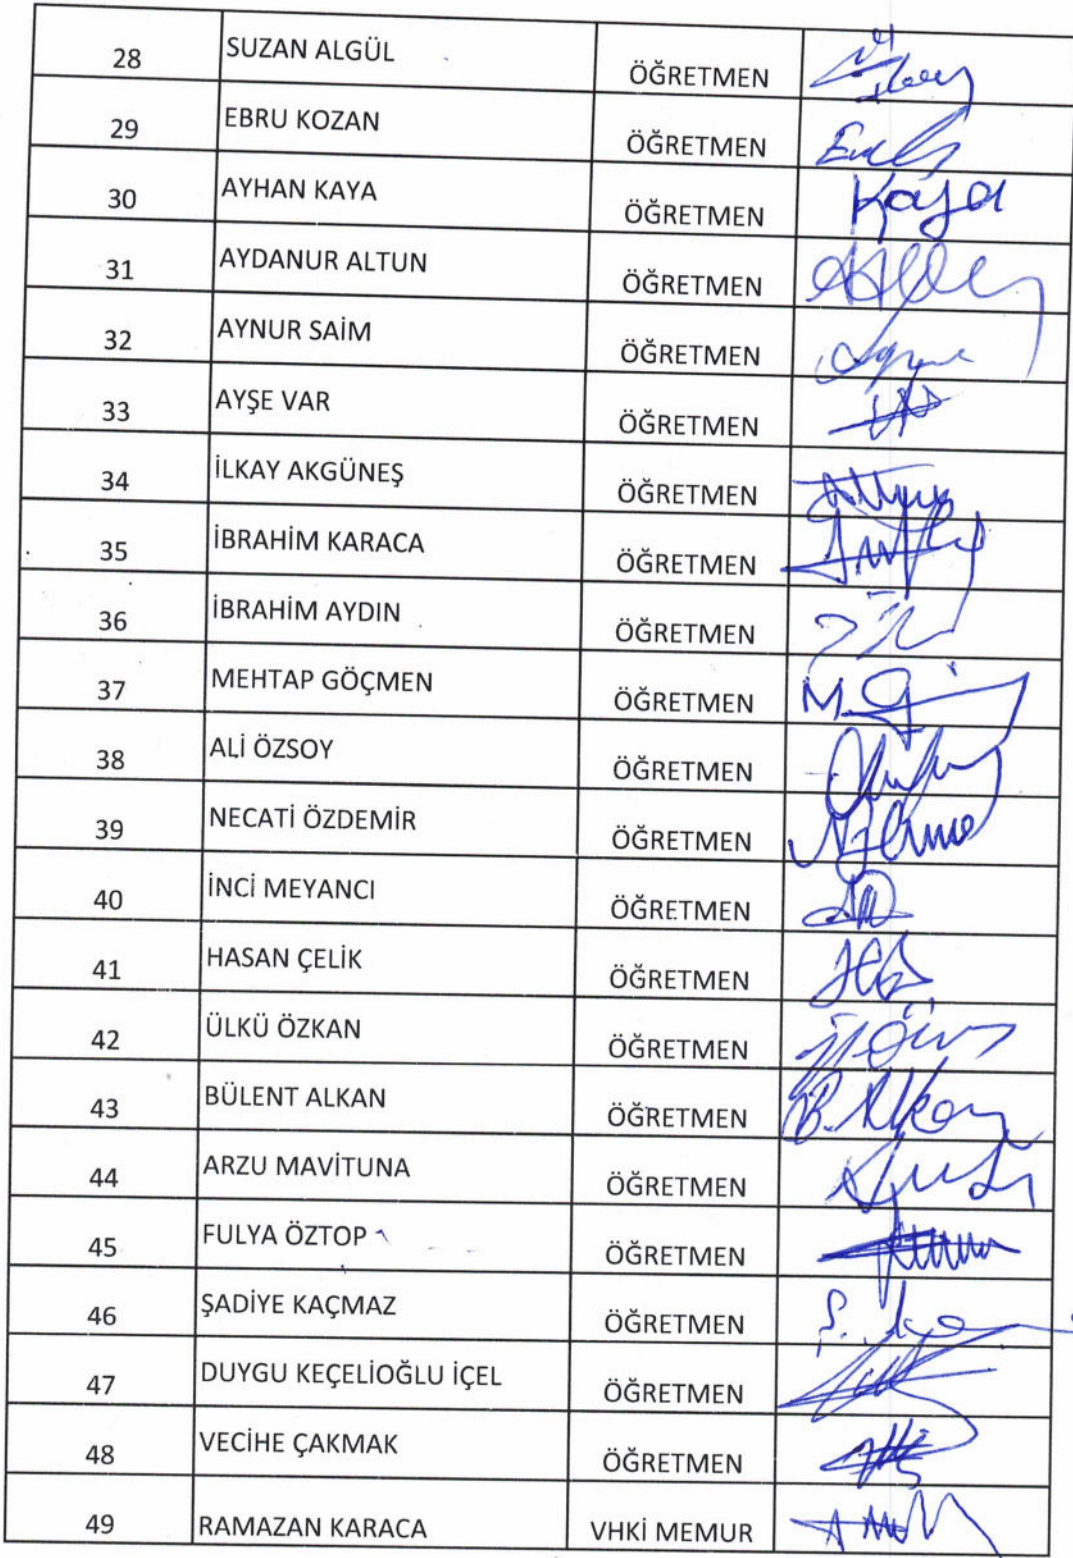 28 SUZAN ALGÜL ÖĞRETMEN
29 EBRU KOZAN ÖĞRETMEN
30 AYHAN KAYA ÖĞRETMEN Kaya
31 AYDANUR ALTUN ÖĞRETMEN
32 AYNUR SAİM ÖĞRETMEN
33 AYŞE VAR ÖĞRETMEN
34 İLKAY AKGÜNEŞ ÖĞRETMEN
35 İBRAHİM KARACA ÖĞRETMEN
36 İBRAHİM AYDIN ÖĞRETMEN
37 MEHTAP GÖÇMEN ÖĞRETMEN
38 ALİ ÖZSOY ÖĞRETMEN
39 NECATİ ÖZDEMİR ÖĞRETMEN
40 İNCİ MEYANCI ÖĞRETMEN
41 HASAN ÇELİK ÖĞRETMEN
42 ÜLKÜ ÖZKAN ÖĞRETMEN
43 BÜLENT ALKAN ÖĞRETMEN B. Alkan
44 ARZU MAVİTUNA ÖĞRETMEN
45 FULYA ÖZTOP ÖĞRETMEN
46 ŞADİYE KAÇMAZ ÖĞRETMEN
47 DUYGU KEÇELİOĞLU İÇEL ÖĞRETMEN
48 VECİHE ÇAKMAK ÖĞRETMEN
49 RAMAZAN KARACA VHKİ MEMUR